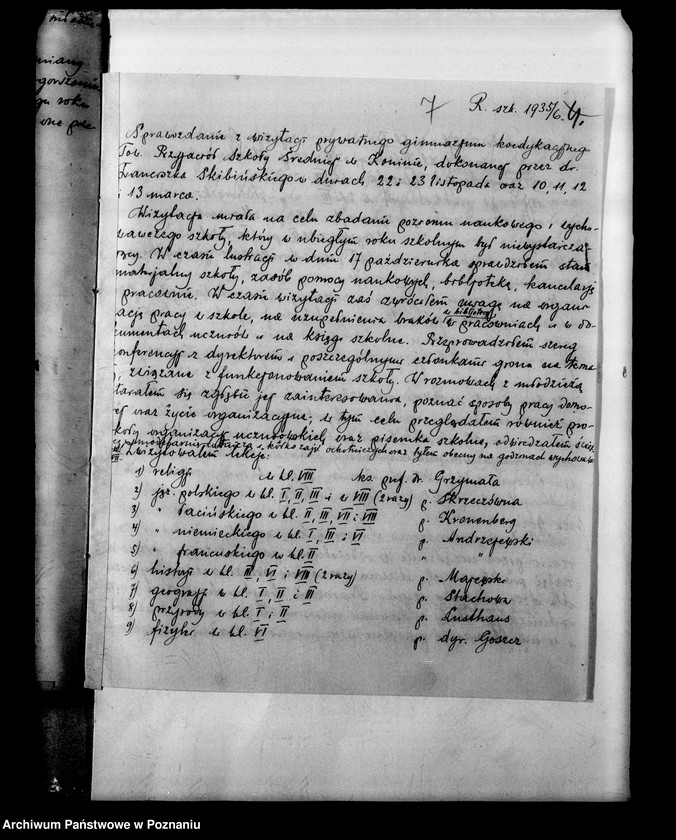 7 R. szk. 1935/6.
Sprawozdanie z wizytacji prywatnego gimnazjum koedukacyjneg.
Tow. Przyjaciół Szkoły Średniej w Koninie, dokonanej przez dr.
Franciszka Skibińskiego w dniach 22 i 23 listopada oraz 10, 11, 12
i 13 marca.
Wizytacja miała na celu zbadanie poziomu naukowego i wycho-
wawczego szkoły, który w ubiegłym roku szkolnym był niewystarcza-
jący. W czasie lustracji w dniu 17 października sprawdziłem stan
materjalny szkoły, zasób pomocy naukowych, bibljotekę, kancelarję
pracownie. W czasie wizytacji zaś zwróciłem uwagę na organi-
zację pracy w szkole, na uzupełnienia braków w bibljotece w pracowniach i w do-
kumentach uczniów i na księgi szkolne. Przeprowadziłem szereg
konferencyj z dyrektorem i poszczególnymi członkami grona na tema
związane z funkcjonowaniem szkoły. W rozmowach z młodzieżą
starałem się zgłębić jej zainteresowania, poznać sposoby pracy domo-
wej oraz życie organizacyjne; w tym celu przeglądałem również pro-
tokoły organizacyj uczniowskich oraz pisemka szkolne, odwiedzałem
kółka zajęć ochotniczych oraz byłem obecny na godzinach wychowaw.
VII. Zwizytowałem lekcje:
1) religji w kl. VIII ks. pref. dr. Grzymała
2) jęz. polskiego w kl. I, II, III i w VIII (2 razy) p. Skrzeczówna
3) " łacińskiego w kl. II, III, VII i VIII p. Kronenberg
4) " niemieckiego w kl. I, III i VI p. Andrzejewski
5) " francuskiego w kl. II " "
6) historji w kl. III, VI i VIII (2 razy) p. Majewski
7) geografji w kl. I, II i III p. Stachowa
8) przyrody w kl. I i II p. Lusthaus
9) fizyki w kl. VI p. dyr. Goszcz
Archiwum Państwowe w Poznaniu